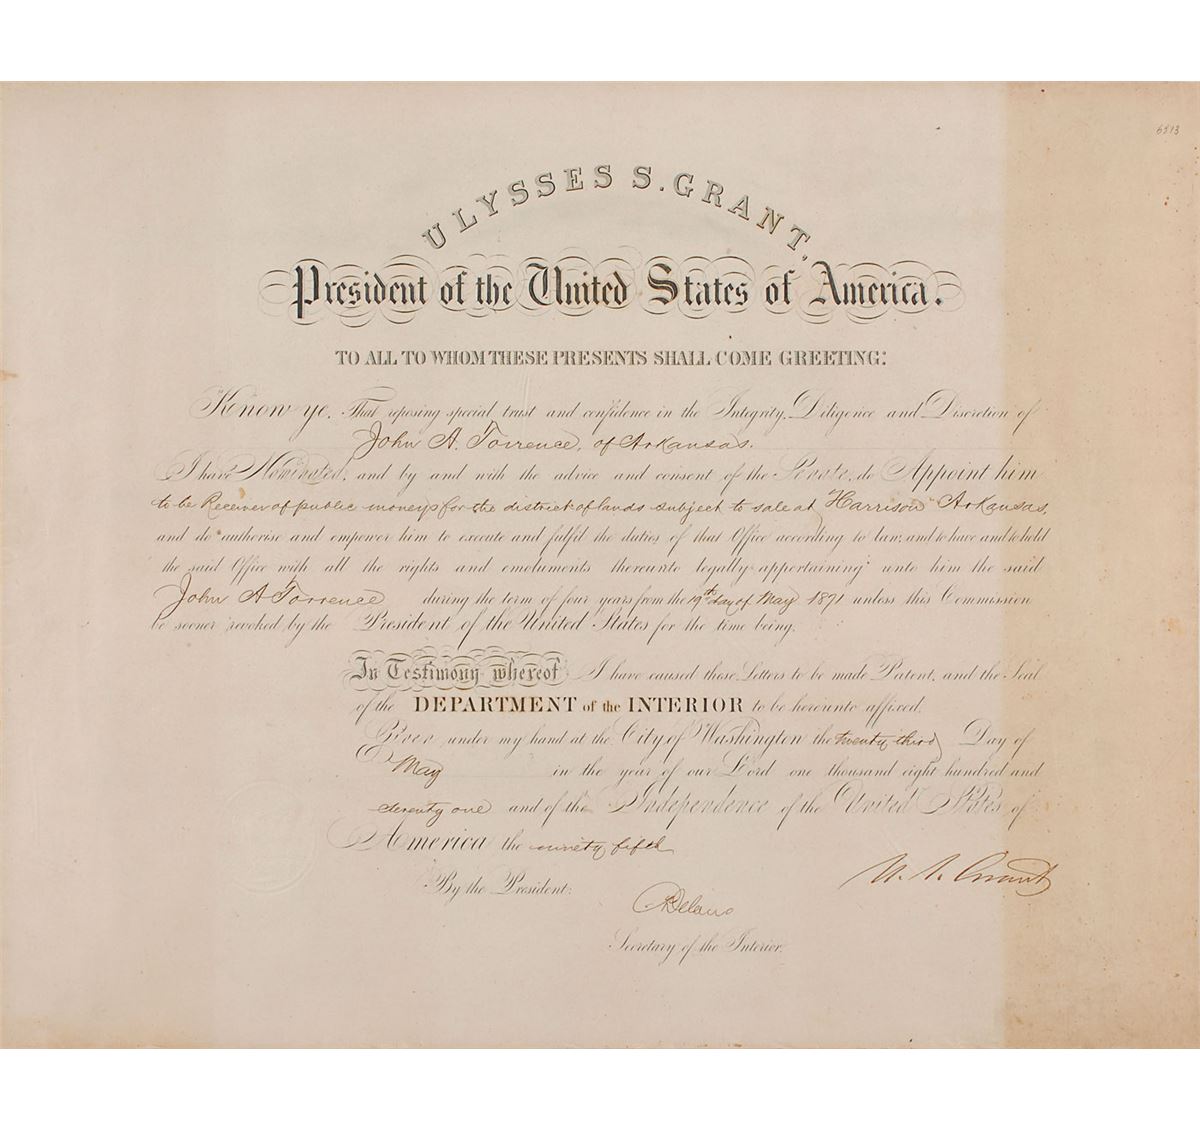 6513
ULYSSES S. GRANT,
President of the United States of America.
TO ALL TO WHOM THESE PRESENTS SHALL COME GREETING:
Know ye, That reposing special trust and confidence in the Integrity, Diligence and Discretion of
John A. Torrence, of Arkansas.
I have Nominated, and by and with the advice and consent of the Senate, do Appoint him
to be Receiver of public moneys for the district of lands subject to sale at "Harrison" Arkansas,
and do authorise and empower him to execute and fulfil the duties of that Office according to law; and to have and to hold
the said Office with all the rights and emoluments thereunto legally appertaining unto him the said
John A Torrence during the term of four years from the 19th day of May 1871 unless this Commission
be sooner revoked by the President of the United States for the time being.
In Testimony whereof I have caused these Letters to be made Patent, and the Seal
of the DEPARTMENT of the INTERIOR to be hereunto affixed.
Given under my hand at the City of Washington the twenty third Day of
May in the year of our Lord one thousand eight hundred and
seventy one and of the Independence of the United States of
America the ninety fifth
By the President: U. S. Grant
C Delano
Secretary of the Interior.